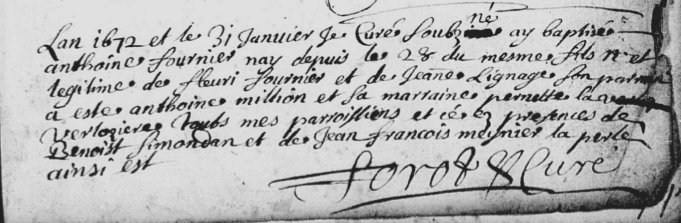 Lan 1672 et le 31 Janvier Je Curé Soubziné ay baptisé
anthoine fournier nay depuis le 28 du mesme fils n et
legitime de fleuri fournier et de Jeane Lignage son parrain
a este anthoine million et sa marraine pernette la
verloziere toubs mes parroissiens et cé ez presences de
Benoist Simondan et de Jean francois meynier la perle
ainsi est
Curé